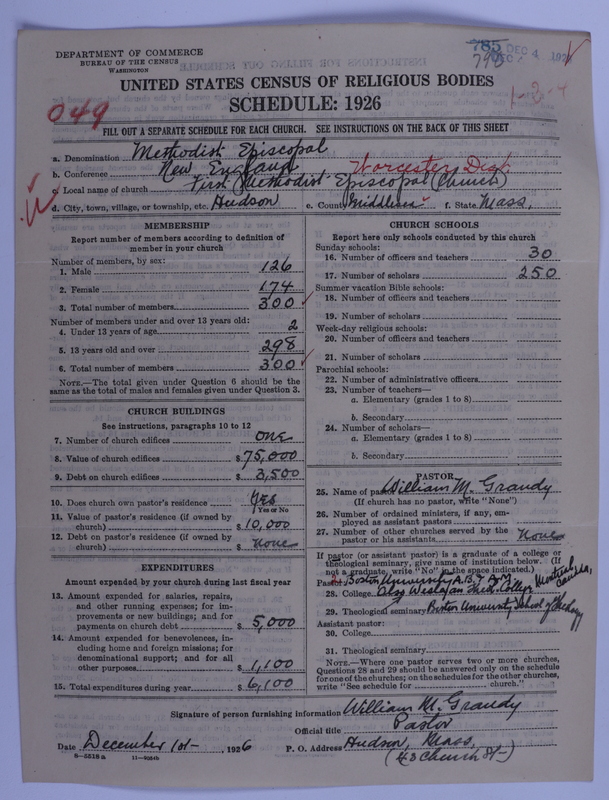 DEPARTMENT OF COMMERCE
BUREAU OF THE CENSUS
WASHINGTON
785 DEC 4 192
798
UNITED STATES CENSUS OF RELIGIOUS BODIES
SCHEDULE: 1926
049
1-3-4
FILL OUT A SEPARATE SCHEDULE FOR EACH CHURCH. SEE INSTRUCTIONS ON THE BACK OF THIS SHEET
a. Denomination Methodist Episcopal
b. Conference New England Worcester Dist.
c. Local name of church First Methodist Episcopal (Church)
d. City, town, village, or township, etc. Hudson e. County Middlesex f. State Mass.
MEMBERSHIP
Report number of members according to definition of
member in your church
Number of members, by sex:
1. Male 126
2. Female 174
3. Total number of members 300
Number of members under and over 13 years old:
4. Under 13 years of age 2
5. 13 years old and over 298
6. Total number of members 300
NOTE.—The total given under Question 6 should be the
same as the total of males and females given under Question 3.
CHURCH BUILDINGS
See instructions, paragraphs 10 to 12
7. Number of church edifices one
8. Value of church edifices $75,000
9. Debt on church edifices $3,500
10. Does church own pastor's residence Yes
Yes or No
11. Value of pastor's residence (if owned by
church) $10,000
12. Debt on pastor's residence (if owned by
church) $ none
EXPENDITURES
Amount expended by your church during last fiscal year
13. Amount expended for salaries, repairs,
and other running expenses; for im-
provements or new buildings; and for
payments on church debt $5,000
14. Amount expended for benevolences, in-
cluding home and foreign missions; for
denominational support; and for all
other purposes $1,100
15. Total expenditures during year $6,100
CHURCH SCHOOLS
Report here only schools conducted by this church
Sunday schools:
16. Number of officers and teachers 30
17. Number of scholars 250
Summer vacation Bible schools:
18. Number of officers and teachers
19. Number of scholars
Week-day religious schools:
20. Number of officers and teachers
21. Number of scholars
Parochial schools:
22. Number of administrative officers
23. Number of teachers—
a. Elementary (grades 1 to 8)
b. Secondary
24. Number of scholars—
a. Elementary (grades 1 to 8)
b. Secondary
PASTOR
25. Name of pastor William M. Grandy
(If church has no pastor, write "None")
26. Number of ordained ministers, if any, em-
ployed as assistant pastors
27. Number of other churches served by the
pastor or his assistants None
If pastor (or assistant pastor) is a graduate of a college or
theological seminary, give name of institution below. (If
not a graduate, write "No" in the space indicated.)
Pastor: Boston University A.B. & A.M.
28. College Also Wesleyan Theol. College Montreal, Canada,
29. Theological seminary Boston University School of Theology
Assistant pastor:
30. College
31. Theological seminary
NOTE.—Where one pastor serves two or more churches,
Questions 28 and 29 should be answered only on the schedule
for one of the churches; on the schedules for the other churches,
write "See schedule for church."
Signature of person furnishing information William M. Grandy
Official title Pastor
Date December 1st—, 1926 P. O. Address Hudson, Mass.
(43 Church St—)
8—5518a 11—9064b